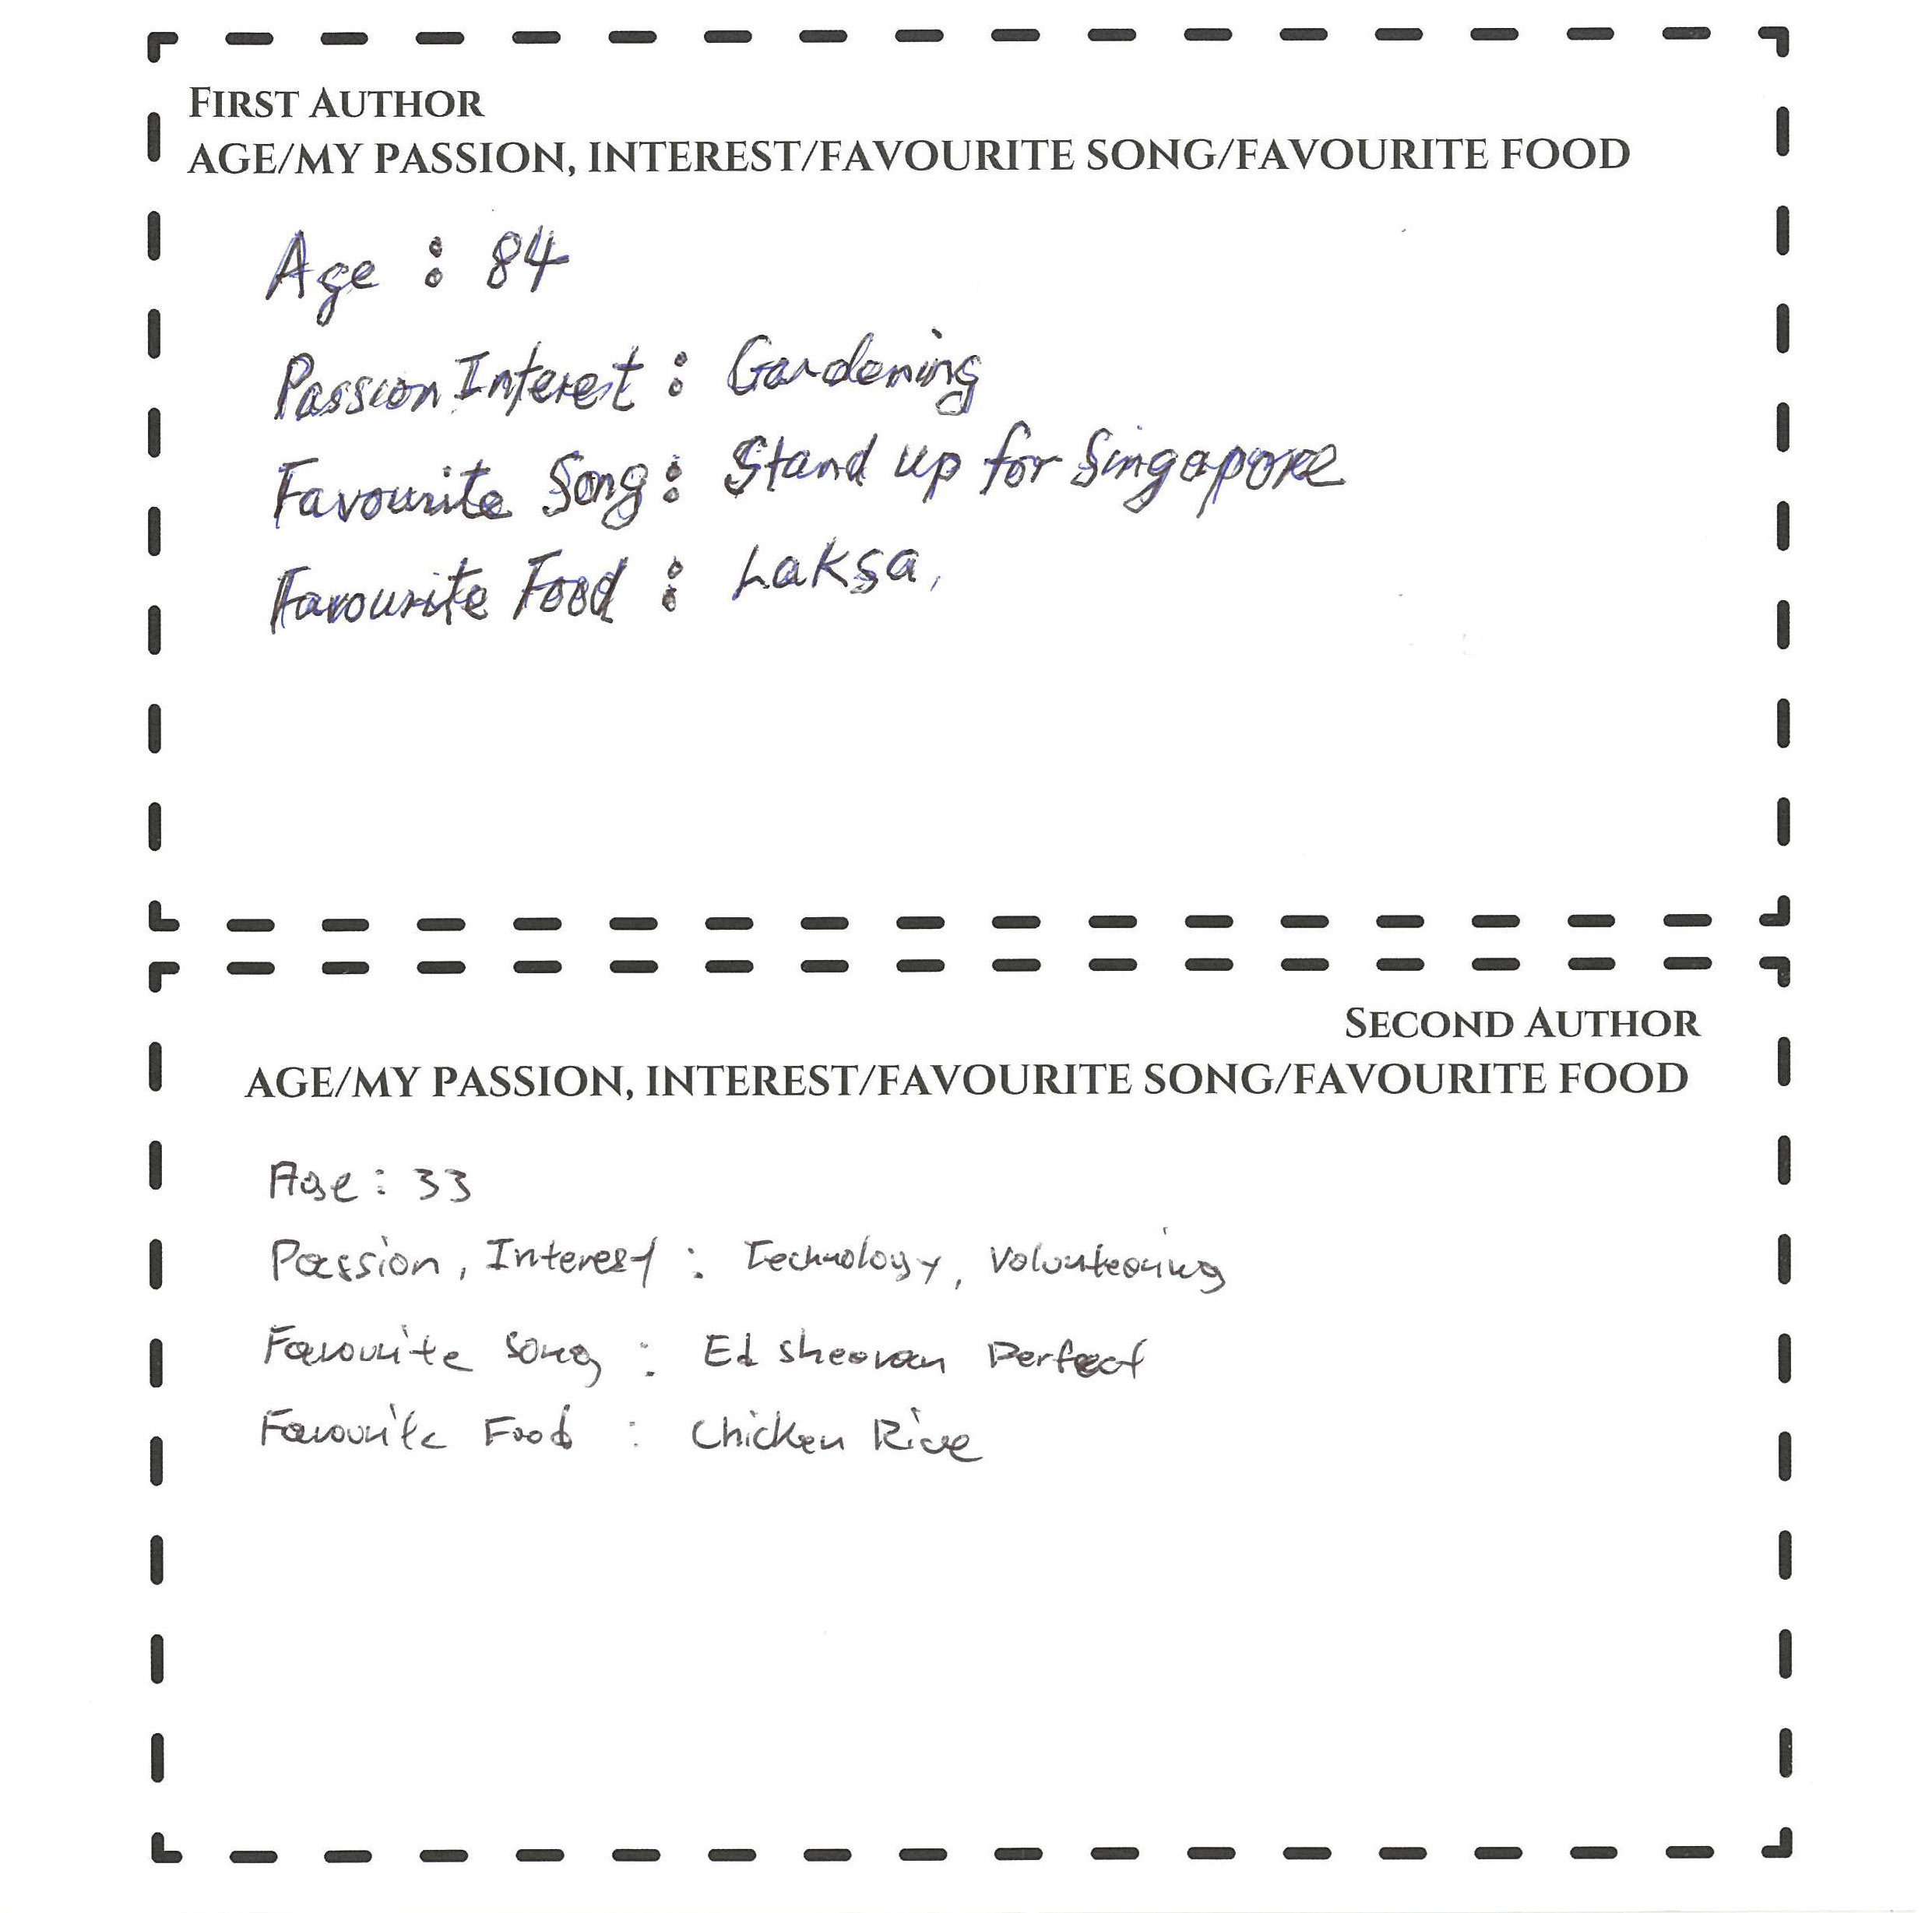 FIRST AUTHOR
AGE/MY PASSION, INTEREST/FAVOURITE SONG/FAVOURITE FOOD
Age : 84
Passion Interest : Gardening
Favourite Song : Stand up for Singapore
Favourite Food : Laksa,
SECOND AUTHOR
AGE/MY PASSION, INTEREST/FAVOURITE SONG/FAVOURITE FOOD
Age : 33
Passion, Interest : Technology, Volunteering
Favourite song : Ed sheeran Perfect
Favourite Food : Chicken Rice